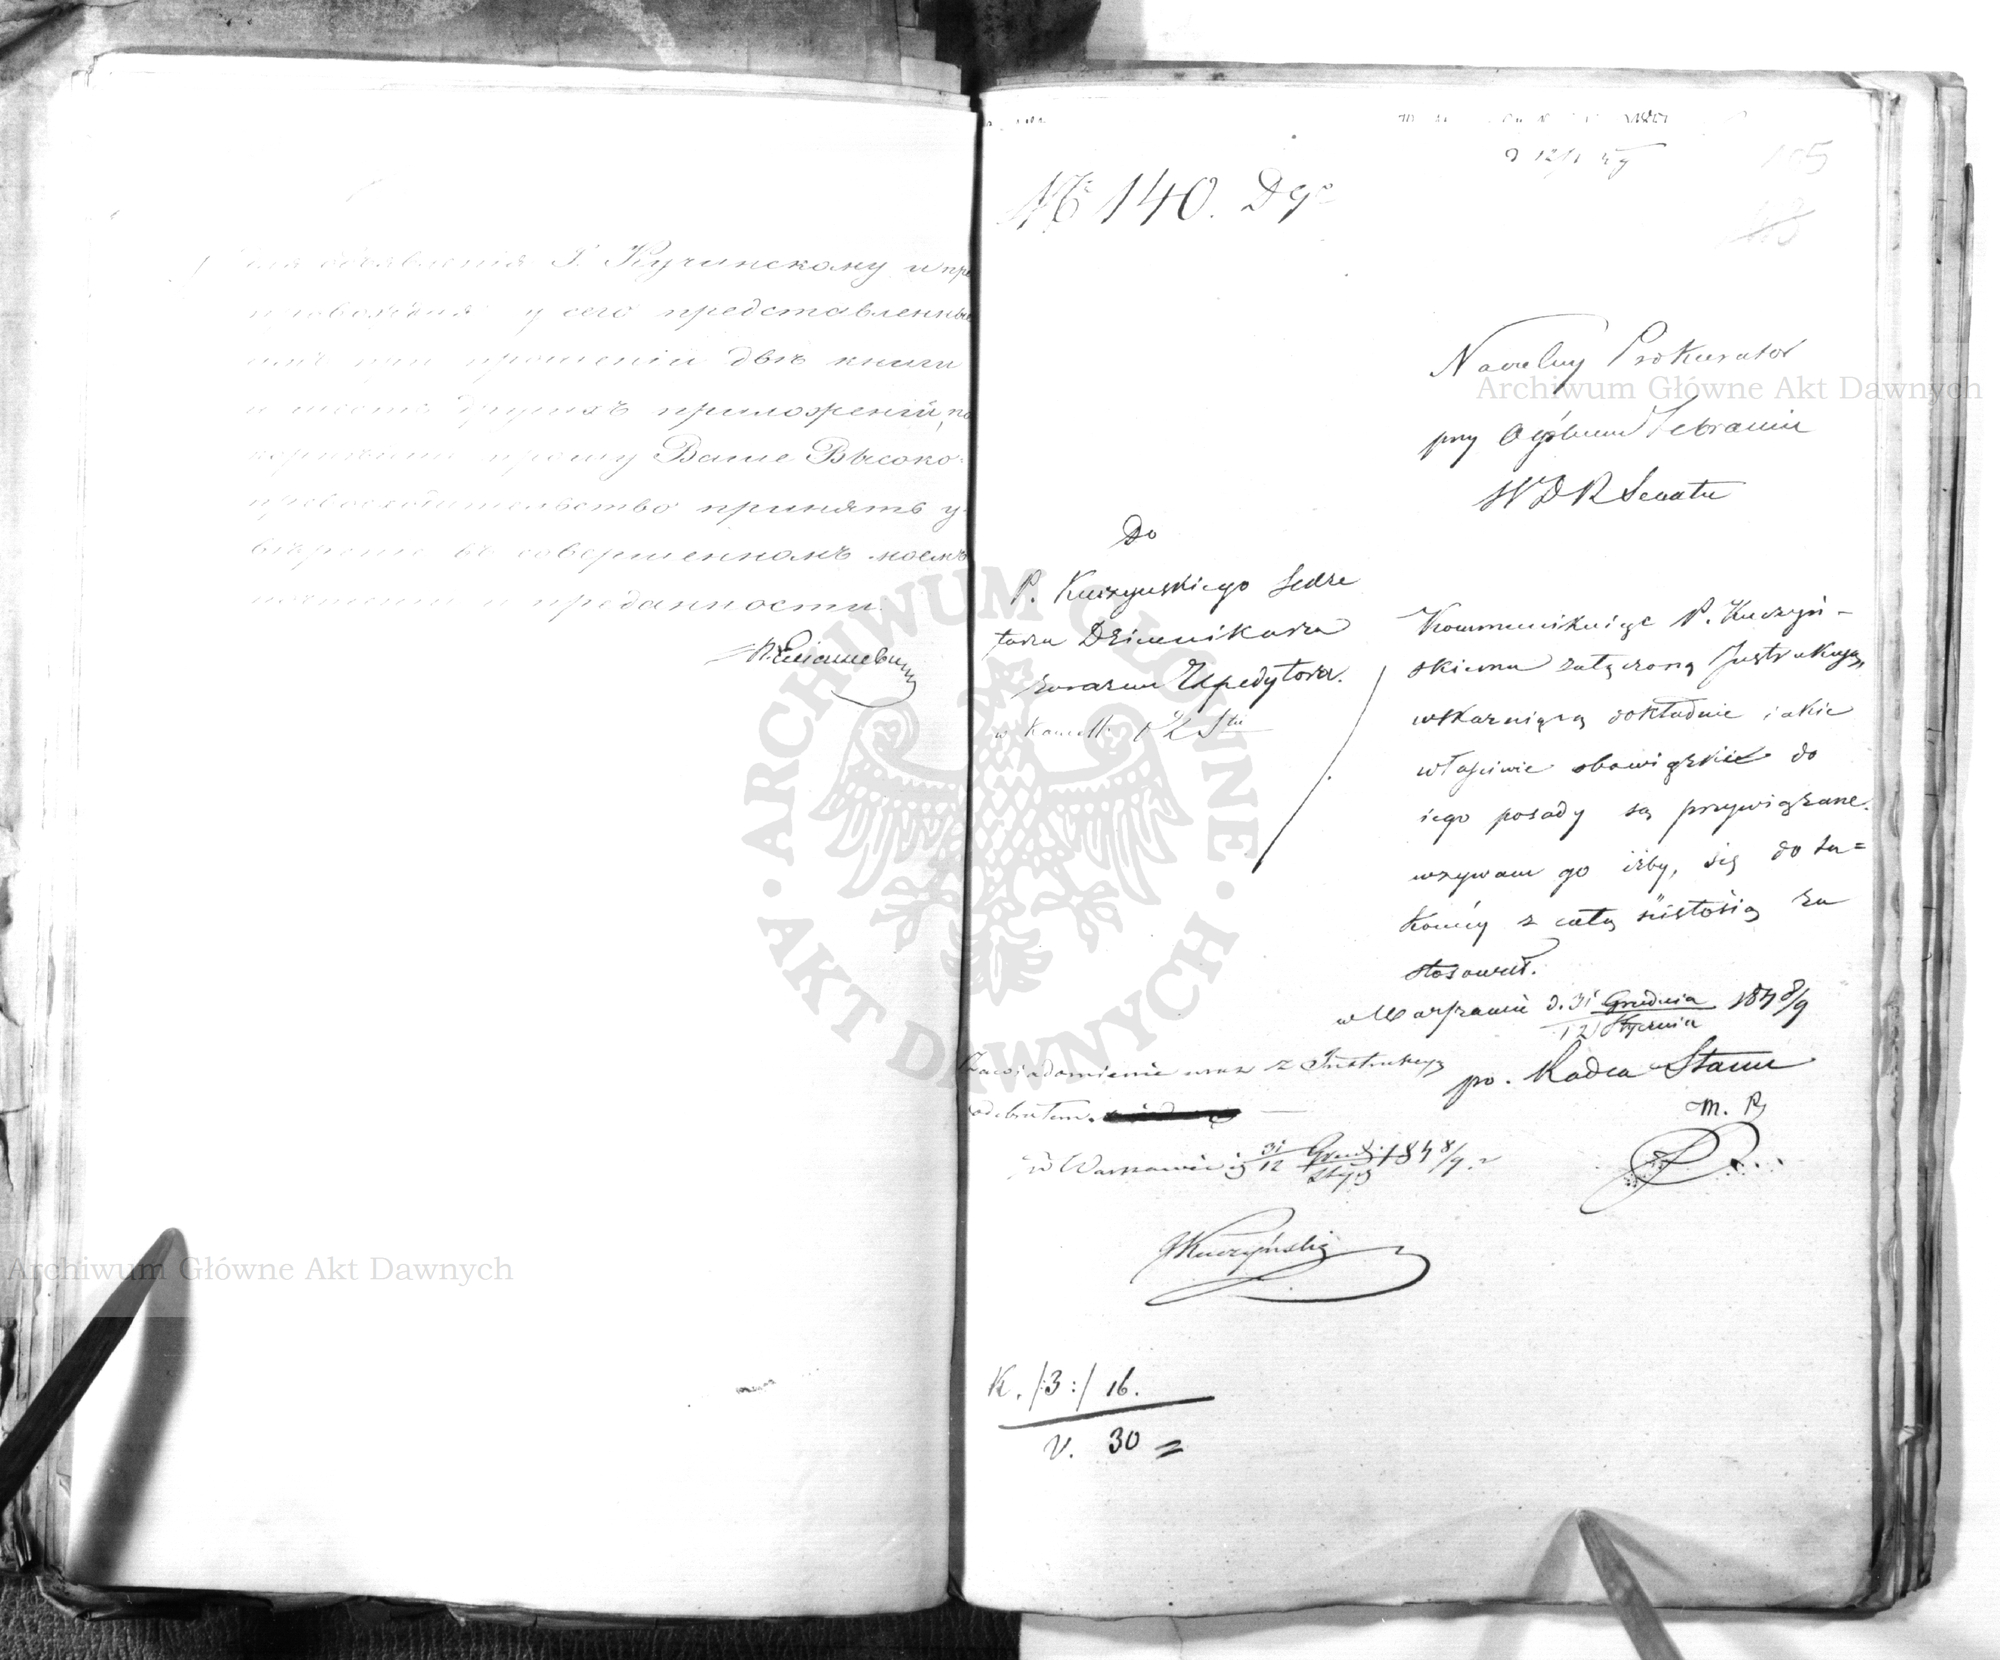 для объявленія Г. Кучинскому и пре
провождая у сего представленныя
имъ при прошеніи двѣ книги
и шесть другихъ приложеній, по
корнѣйше прошу Ваше Высоко-
превосходительство принять у-
вѣреніе въ совершенномъ моемъ
почтеніи и преданности.
№ 140. Dgo
105
Naczelny Prokurator
przy Ogólnem Zebraniu
W D R Senatu
Do
P. Kuczyńskiego Sekre
tarza Dziennikarza
zarazem Expedytora
w Kancell.
Kommunikując P. Kuczyń-
skiemu załączoną Instrukcyą,
wskazującą dokładnie iakie
właściwie obowiązkie do
iego posady są przywiązane.
wzywam go iżby, się do ta=
kowéy z całą ścisłością za
stosował.
w Warszawie d. 31 Grudnia 1848/9
12 Stycznia
po. Radca Stanu
M. R
Zawiadomienie wraz z Instrukcyą
odebrałem.
w Warszawie d 31 Grud. 1848/9 r
12 Stycz
JKuczyński
K. /:3:/ 16.
V. 30 =
Archiwum Główne Akt Dawnych
Archiwum Główne Akt Dawnych
ARCHIWUM GŁÓWNE · AKT DAWNYCH ·